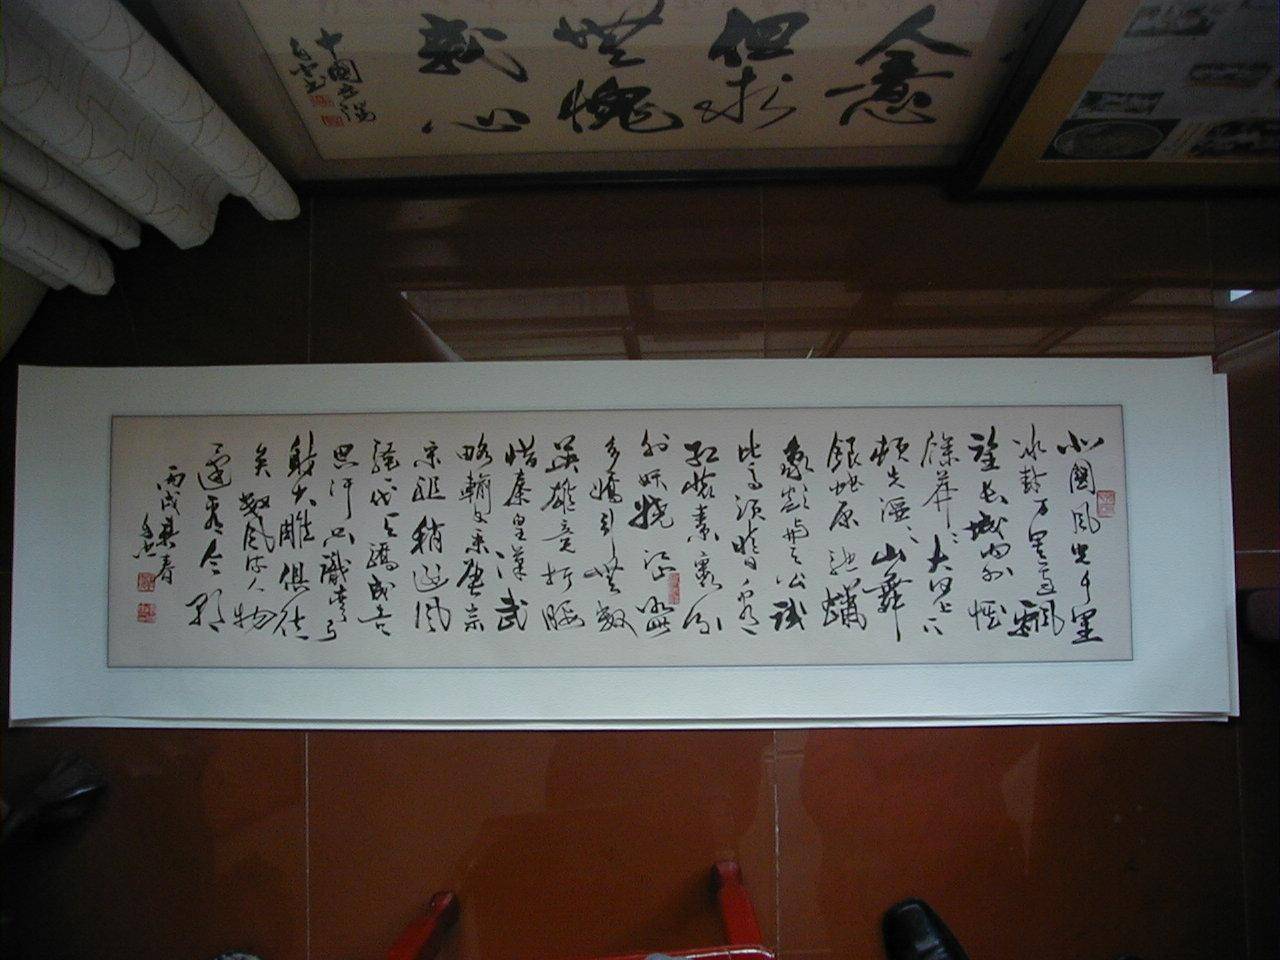 人意
但求
無愧
我心
中國
北國風光千里
冰封万里雪飘
望长城内外惟
馀莽莽大河上下
頓失滔滔山舞
銀蛇原馳蠟
象欲与天公試
比高須晴日看
红装素裹分
外妖娆江山如此
多嬌引無數
英雄竞折腰
惜秦皇漢武
略輸文采唐宗
宋祖稍逊風
骚一代天驕成吉
思汗只識彎弓
射大雕俱往
矣數風流人物
還看今朝
丙戌暮春